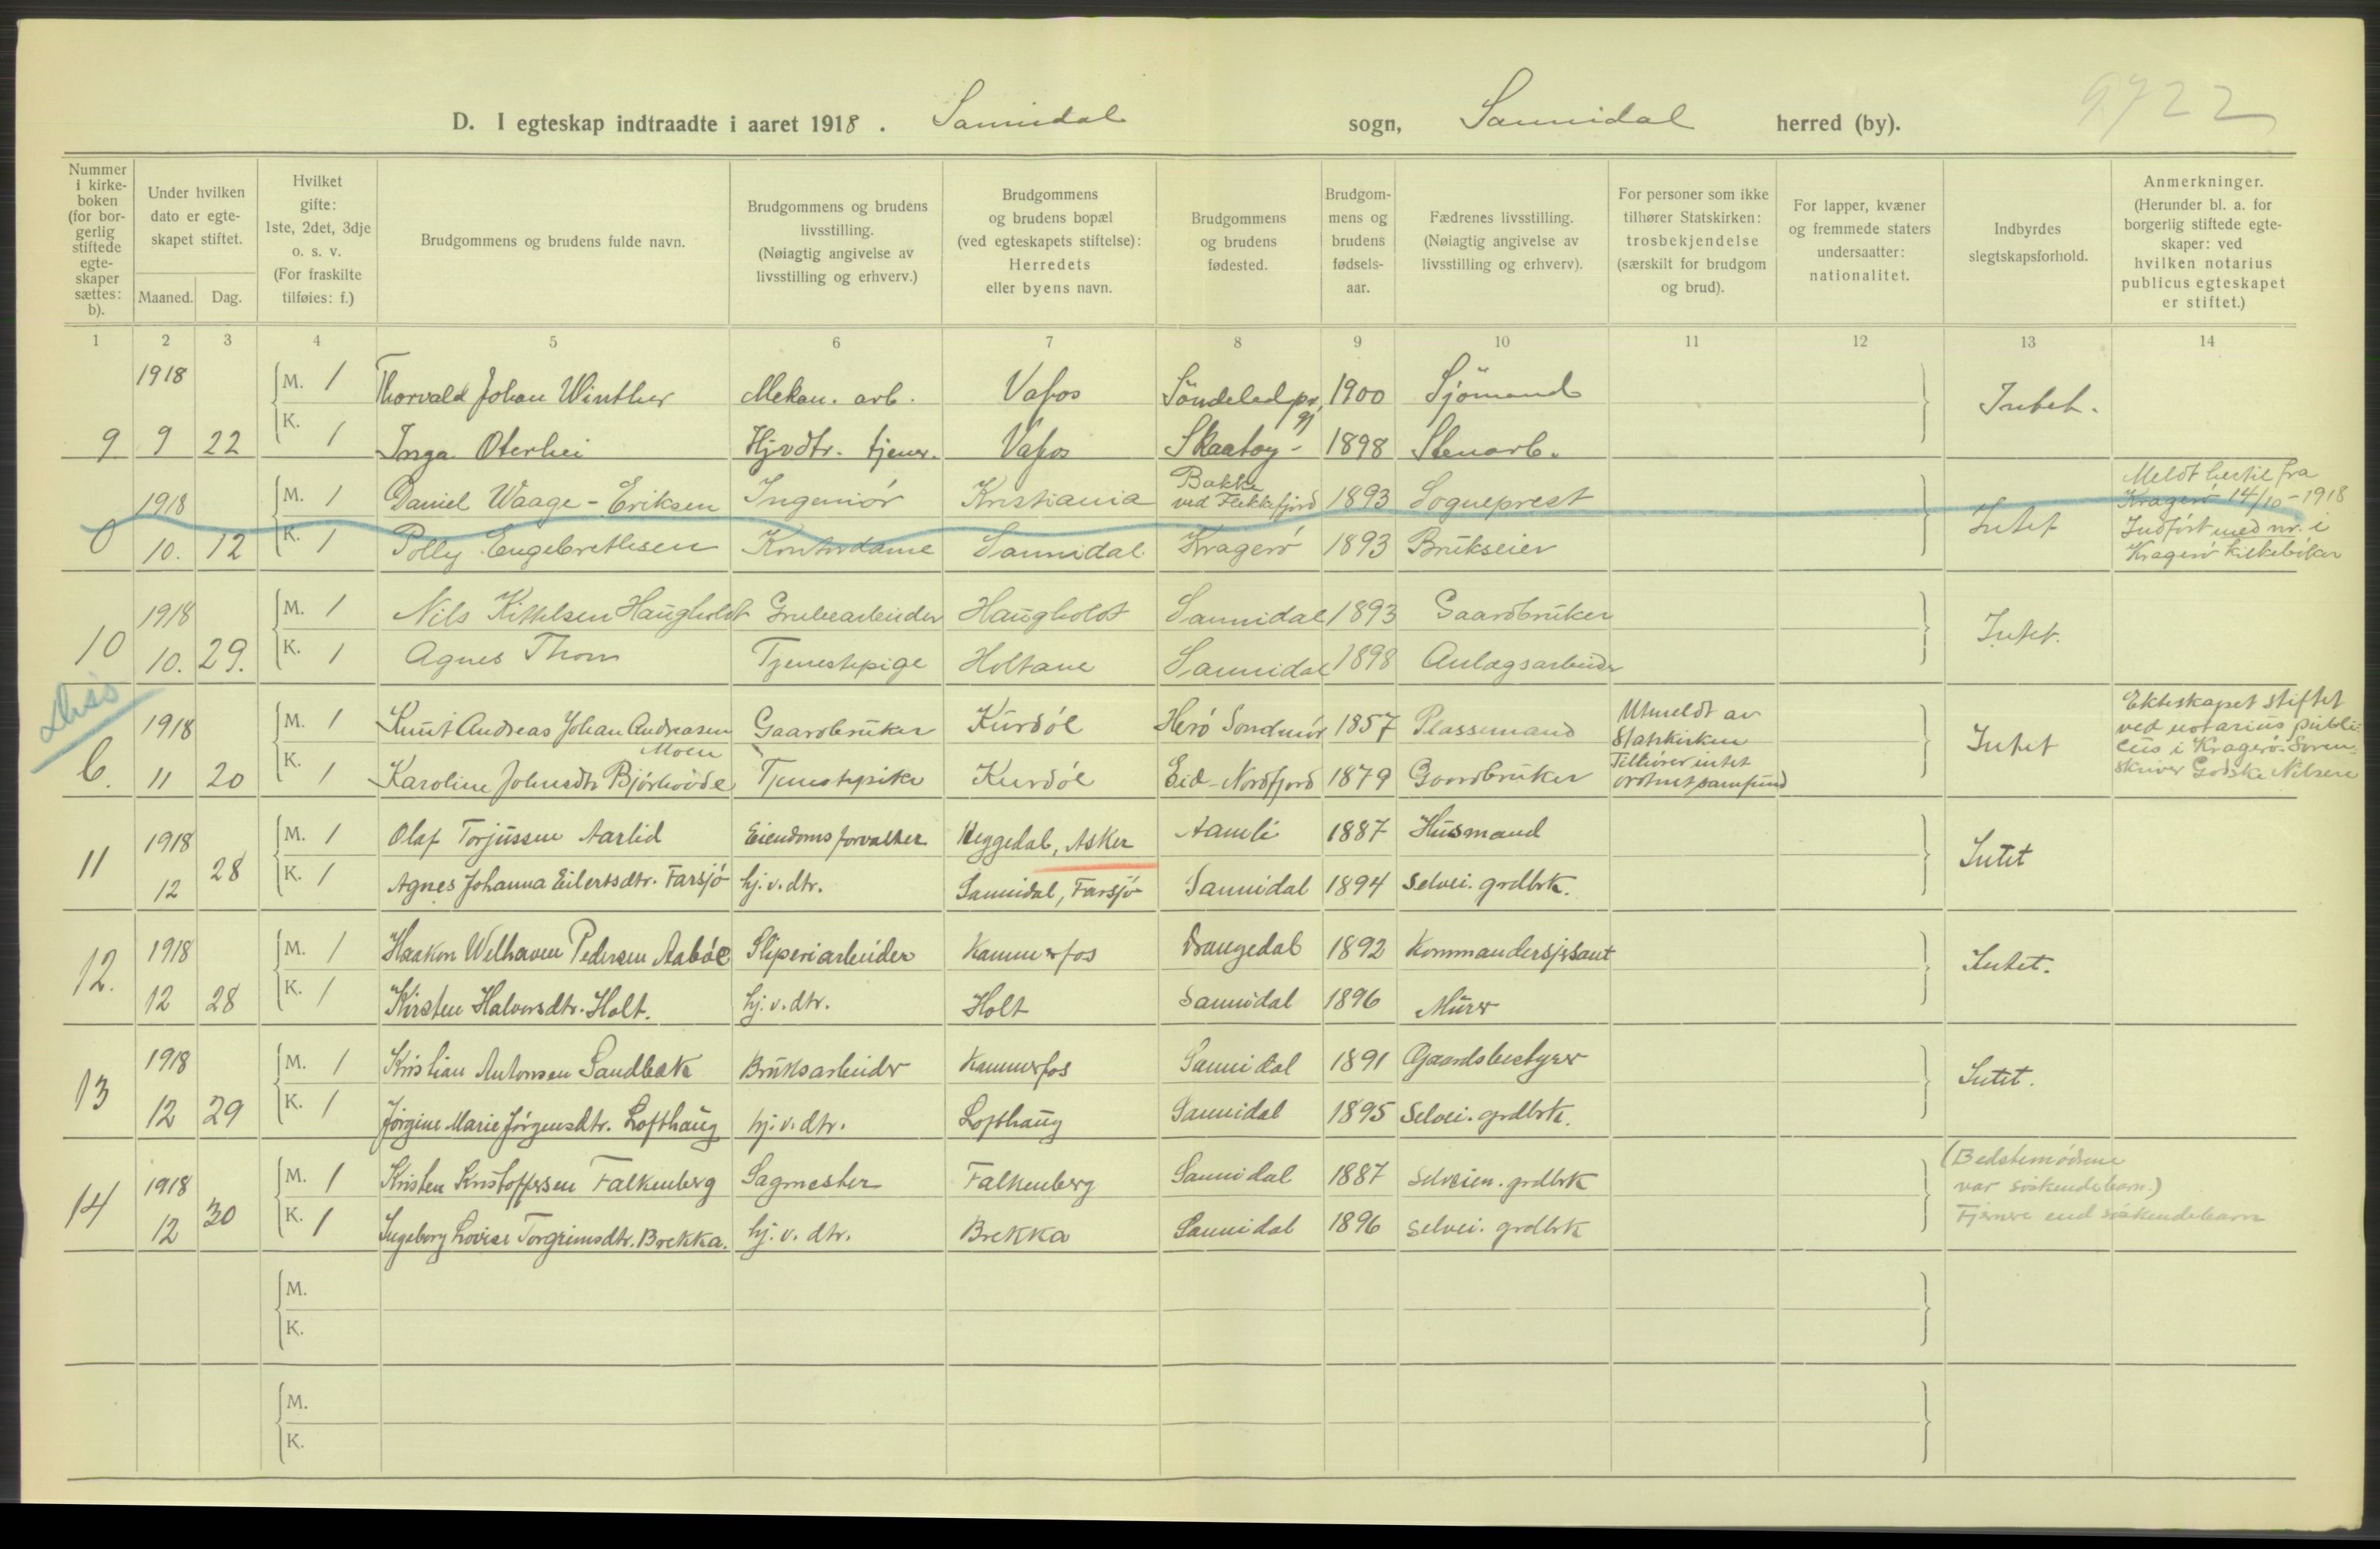 9722
D. I egteskap indtraadte i aaret 1918 . Sannidal sogn, Sannidal herred (by).
Nummer i kirke-boken (for bor-gerlig stiftede egte-skaper sættes: b).
Under hvilken dato er egte-skapet stiftet.
Maaned. Dag.
Hvilket gifte: 1ste, 2det, 3dje o. s. v. (For fraskilte tilføies: f.)
Brudgommens og brudens fulde navn.
Brudgommens og brudens livsstilling. (Nøiagtig angivelse av livsstilling og erhverv.)
Brudgommens og brudens bopæl (ved egteskapets stiftelse): Herredets eller byens navn.
Brudgommens og brudens fødested.
Brudgom-mens og brudens fødsels-aar.
Fædrenes livsstilling. (Nøiagtig angivelse av livsstilling og erhverv).
For personer som ikke tilhører Statskirken: trosbekjendelse (særskilt for brudgom og brud).
For lapper, kvæner og fremmede staters undersaatter: nationalitet.
Indbyrdes slegtskapsforhold.
Anmerkninger. (Herunder bl. a. for borgerlig stiftede egte-skaper: ved hvilken notarius publicus egteskapet er stiftet.)
1 2 3 4 5 6 7 8 9 10 11 12 13 14
1918 M. 1 Thorvald Johan Winther Mekan. arb. Vafos Söndeled 1900 Sjömand Intet.
9 9 22 K. 1 Inga Oterhei Hjvdtr. tjener. Vafos Skaatøy 1898 Stenarb.
1918 M. 1 Daniel Waage-Eriksen Ingeniör Kristiania Bakke ved Flekkefjord 1893 Sogneprest Intet
0 10. 12 K. 1 Polly Engebrethsen Kontordame Sannidal Kragerö 1893 Brukseier
Meldt hertil fra
Kragerö 14/10-1918
Indført med nr. i
Kragerö kirkebøker
1918 M. 1 Nils Kittelsen Haugholdt Grubearbeider Haugholdt Sannidal 1893 Gaardbruker Intet.
10 10. 29. K. 1 Agnes Thom Tjenestepige Holtane Sannidal 1898 Anlægsarbeider
Diss
1918 M. 1 Knut Andreas Johan Andreasen Moen Gaardbruker Kurdöl Herö Sondmör 1857 Plassemand Intet
b. 11 20 K. 1 Karoline Johnsdtr Bjórhovde Tjenestepike Kurdöl Eid-Nordfjord 1879 Gaardbruker
Utmeldt av
Statskirken
Tilhører intet
ordnet samfund
Ekteskapet stiftet
ved notarius publi-
cus i Kragerö. Soren-
skriver Godske Nilsen
1918 M. 1 Olaf Torjussen Aarlid Eiendomsforvalter Heggedal, Asker Aamli 1887 Husmand Intet
11 12 28 K. 1 Agnes Johanna Eilertsdtr. Farsjö hj.v.dtr. Sannidal, Farsjö Sannidal 1894 Selvei. grdbrk.
1918 M. 1 Haakon Welhaven Pedersen Aaböe Sliperiarbeider Kammerfos Drangedal 1892 Kommandersjrsant Intet.
12. 12 28 K. 1 Kirsten Halvorsdtr. Holt. hj.v.dtr. Holt Sannidal 1896 Murer
1918 M. 1 Kristian Antonsen Sandbæk Bruksarbeider Kammerfos Sannidal 1891 Gaardsbestyrer Intet.
13 12 29 K. 1 Jörgine Marie Jörgensdtr. Lofthaug hj.v.dtr. Lofthaug Sannidal 1895 Selvei. grdbrk.
1918 M. 1 Kristen Kristoffersen Falkenberg Sagmester Falkenberg Sannidal 1887 Selveien. grdbrk
14 12 30 K. 1 Ingeborg Lovise Torgrimsdtr. Brekka. hj.v.dtr. Brekka Sannidal 1896 Selvei. grdbrk
(Bedstemødrene
var söskendebarn.)
Fjernere end söskendebarn
M.
K.
M.
K.